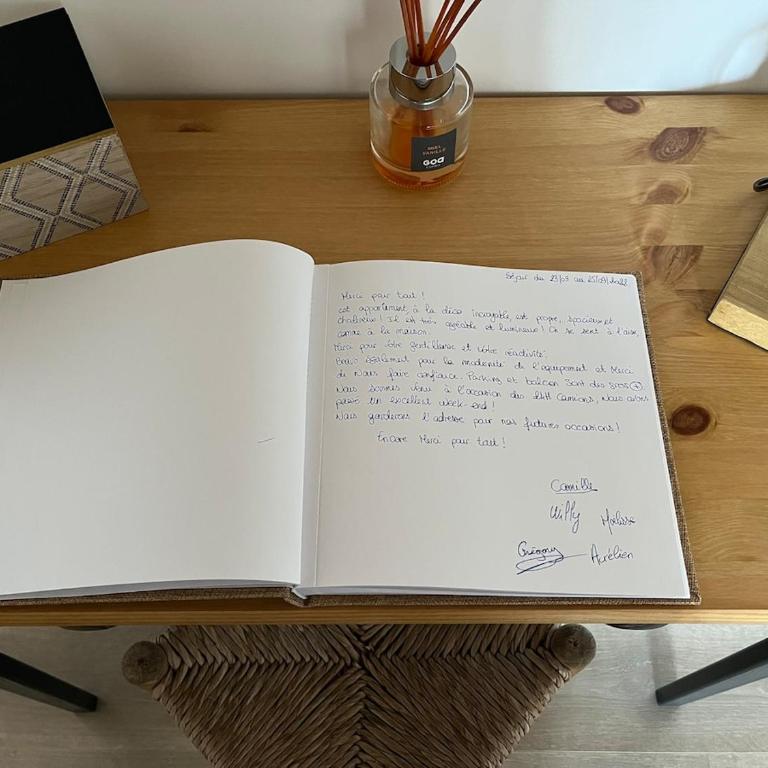 MIEL
VANILLE
GOA
Séjour du 23/09 au 25/09/2022
Merci pour tout !
cet appartement, à la déco incroyable, est propre, spacieux et
chaleureux ! Il est très agréable et lumineux ! On se sent à l'aise,
comme à la maison.
Merci pour votre gentillesse et votre réactivité.
Bravo également pour la modernité de l'équipement et Merci
de nous faire confiance. Parking et balcon sont des gros +
Nous sommes venu à l'occasion des 24H Camions, nous avons
passé un excellent week-end !
Nous garderons l'adresse pour nos futures occasions !
Encore Merci pour tout !
Camille
Willy Maëlisse
Grégory Aurélien